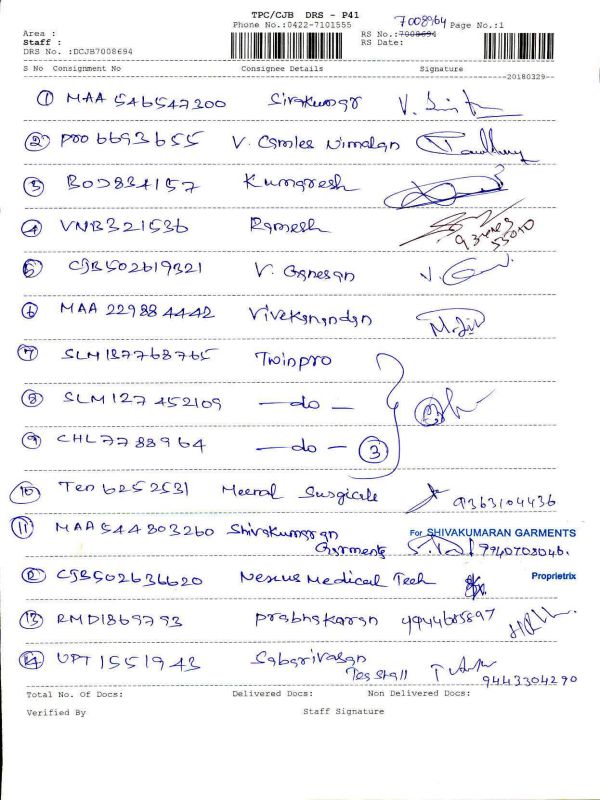 TPC/CJB DRS - P41
Phone No.:0422-7101555
7008964
Page No.:1
Area :
Staff :
DRS No. :DCJB7008694
RS No.:7008694
RS Date:
S No Consignment No Consignee Details Signature
20180329
1 MAA 546547300 Sivakumar
2 PRO 6693655 V. Camles Nimalan
3 BOD834157 Kumaresh
4 VNB321536 Ramesh
5 CJB502619321 V. Ganesan
6 MAA 229884442 Vivekanandan
7 SLM187768765 Twinpro
8 SLM127452109 —do—
9 CHL7788964 —do— 3
10 Ten 6252531 Meenal Surgicals 9363104436
11 MAA544803260 Shivakumaran
Garments
For SHIVAKUMARAN GARMENTS
9940708046.
Proprietrix
12 CJB502636620 Nexus Medical Tech
13 RMD1869793 Prabhakaran 4944685897
14 UPT 1551943 Sabarivasan
Tea Stall
9443304290
Total No. Of Docs: Delivered Docs: Non Delivered Docs:
Verified By Staff Signature